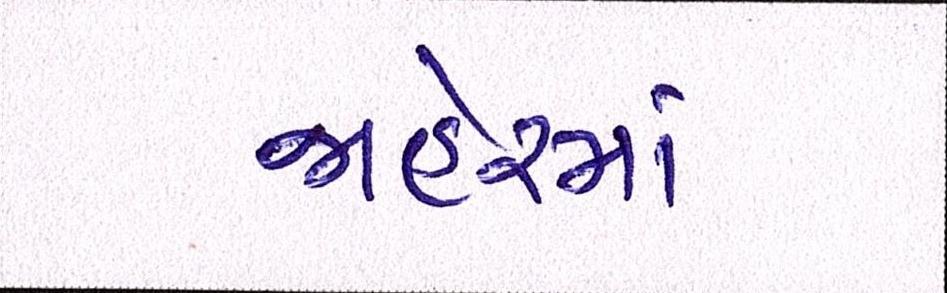 જાહેરમાં